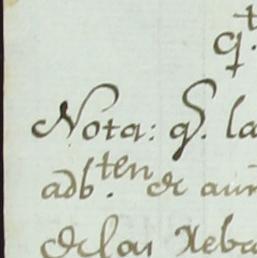 qt.
Nota: q.e la
adb.ten de aun
de las Xebe